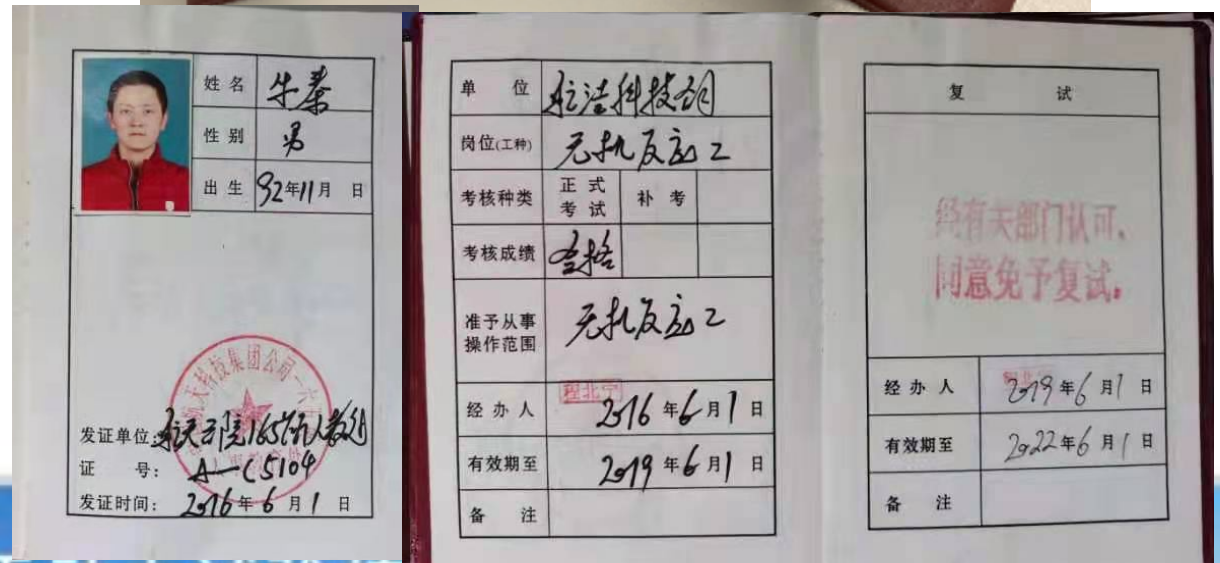 姓名 牛泰
性别 男
出生 92年11月 日
航天科技集团公司一六
发证单位:航天六院165所人教处
证 号: A-C5104
发证时间: 2016年6月1日
单 位 航洁科技公司
岗位(工种) 无机反应工
考核种类 正式考试 补考
考核成绩 合格
准予从事操作范围 无机反应工
经办人 程北宁 2016年6月1日
有效期至 2019年6月1日
备 注
复 试
经有关部门认可,
同意免予复试。
经办人 2019年6月1日
有效期至 2022年6月1日
备 注